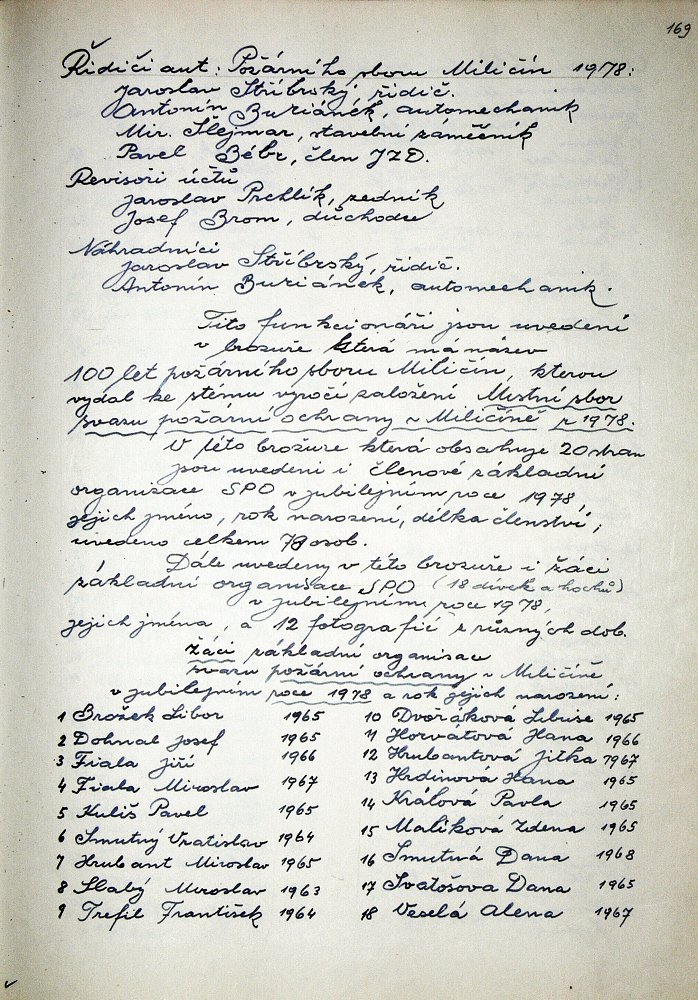 169
Řidiči aut: Požárního sboru Miličín 1978:
Jaroslav Stříbrský, řidič.
Antonín Buriánek, automechanik
Mir. Šlejmar, stavební zámečník
Pavel Bébr, člen JZD.
Revisoři účtů
Jaroslav Prchlík, zedník
Josef Brom, důchodce
Náhradníci
Jaroslav Stříbrský, řidič.
Antonín Buriánek, automechanik.
Tito funkcionáři jsou uvedeni
v brožuře která má název
100 let požárního sboru Miličín, kterou
vydal ke stému výročí založení Mestní sbor
svazu požární ochrany v Miličíně r 1978.
V této brožuře která obsahuje 20 stran
jsou uvedeni i členové základní
organisace SPO v jubilejním roce 1978,
jejich jméno, rok narození, délka členství,
uvedeno celkem 78 osob.
Dále uvedeny v této brožuře i žáci
základní organisace SPO (18 dívek a hochů)
v jubilejním roce 1978,
jejich jména, a 12 fotografií z různých dob.
Žáci základní organisace
svazu požární ochrany v Miličíně
v jubilejním roce 1978 a rok jejich narození:
1 Brožek Libor 1965
2 Dohnal Josef 1965
3 Fiala Jiří 1966
4 Fiala Miroslav 1967
5 Kuliš Pavel 1965
6 Smutný Vratislav 1964
7 Hrubant Miroslav 1965
8 Slabý Miroslav 1963
9 Trefil František 1964
10 Dvořáková Libuse 1965
11 Horvátová Hana 1966
12 Hrubantová Jitka 1967
13 Hrdinová Hana 1965
14 Králová Pavla 1965
15 Malíková Zdena 1965
16 Smutná Dana 1968
17 Svatošova Dana 1965
18 Veselá Alena 1967